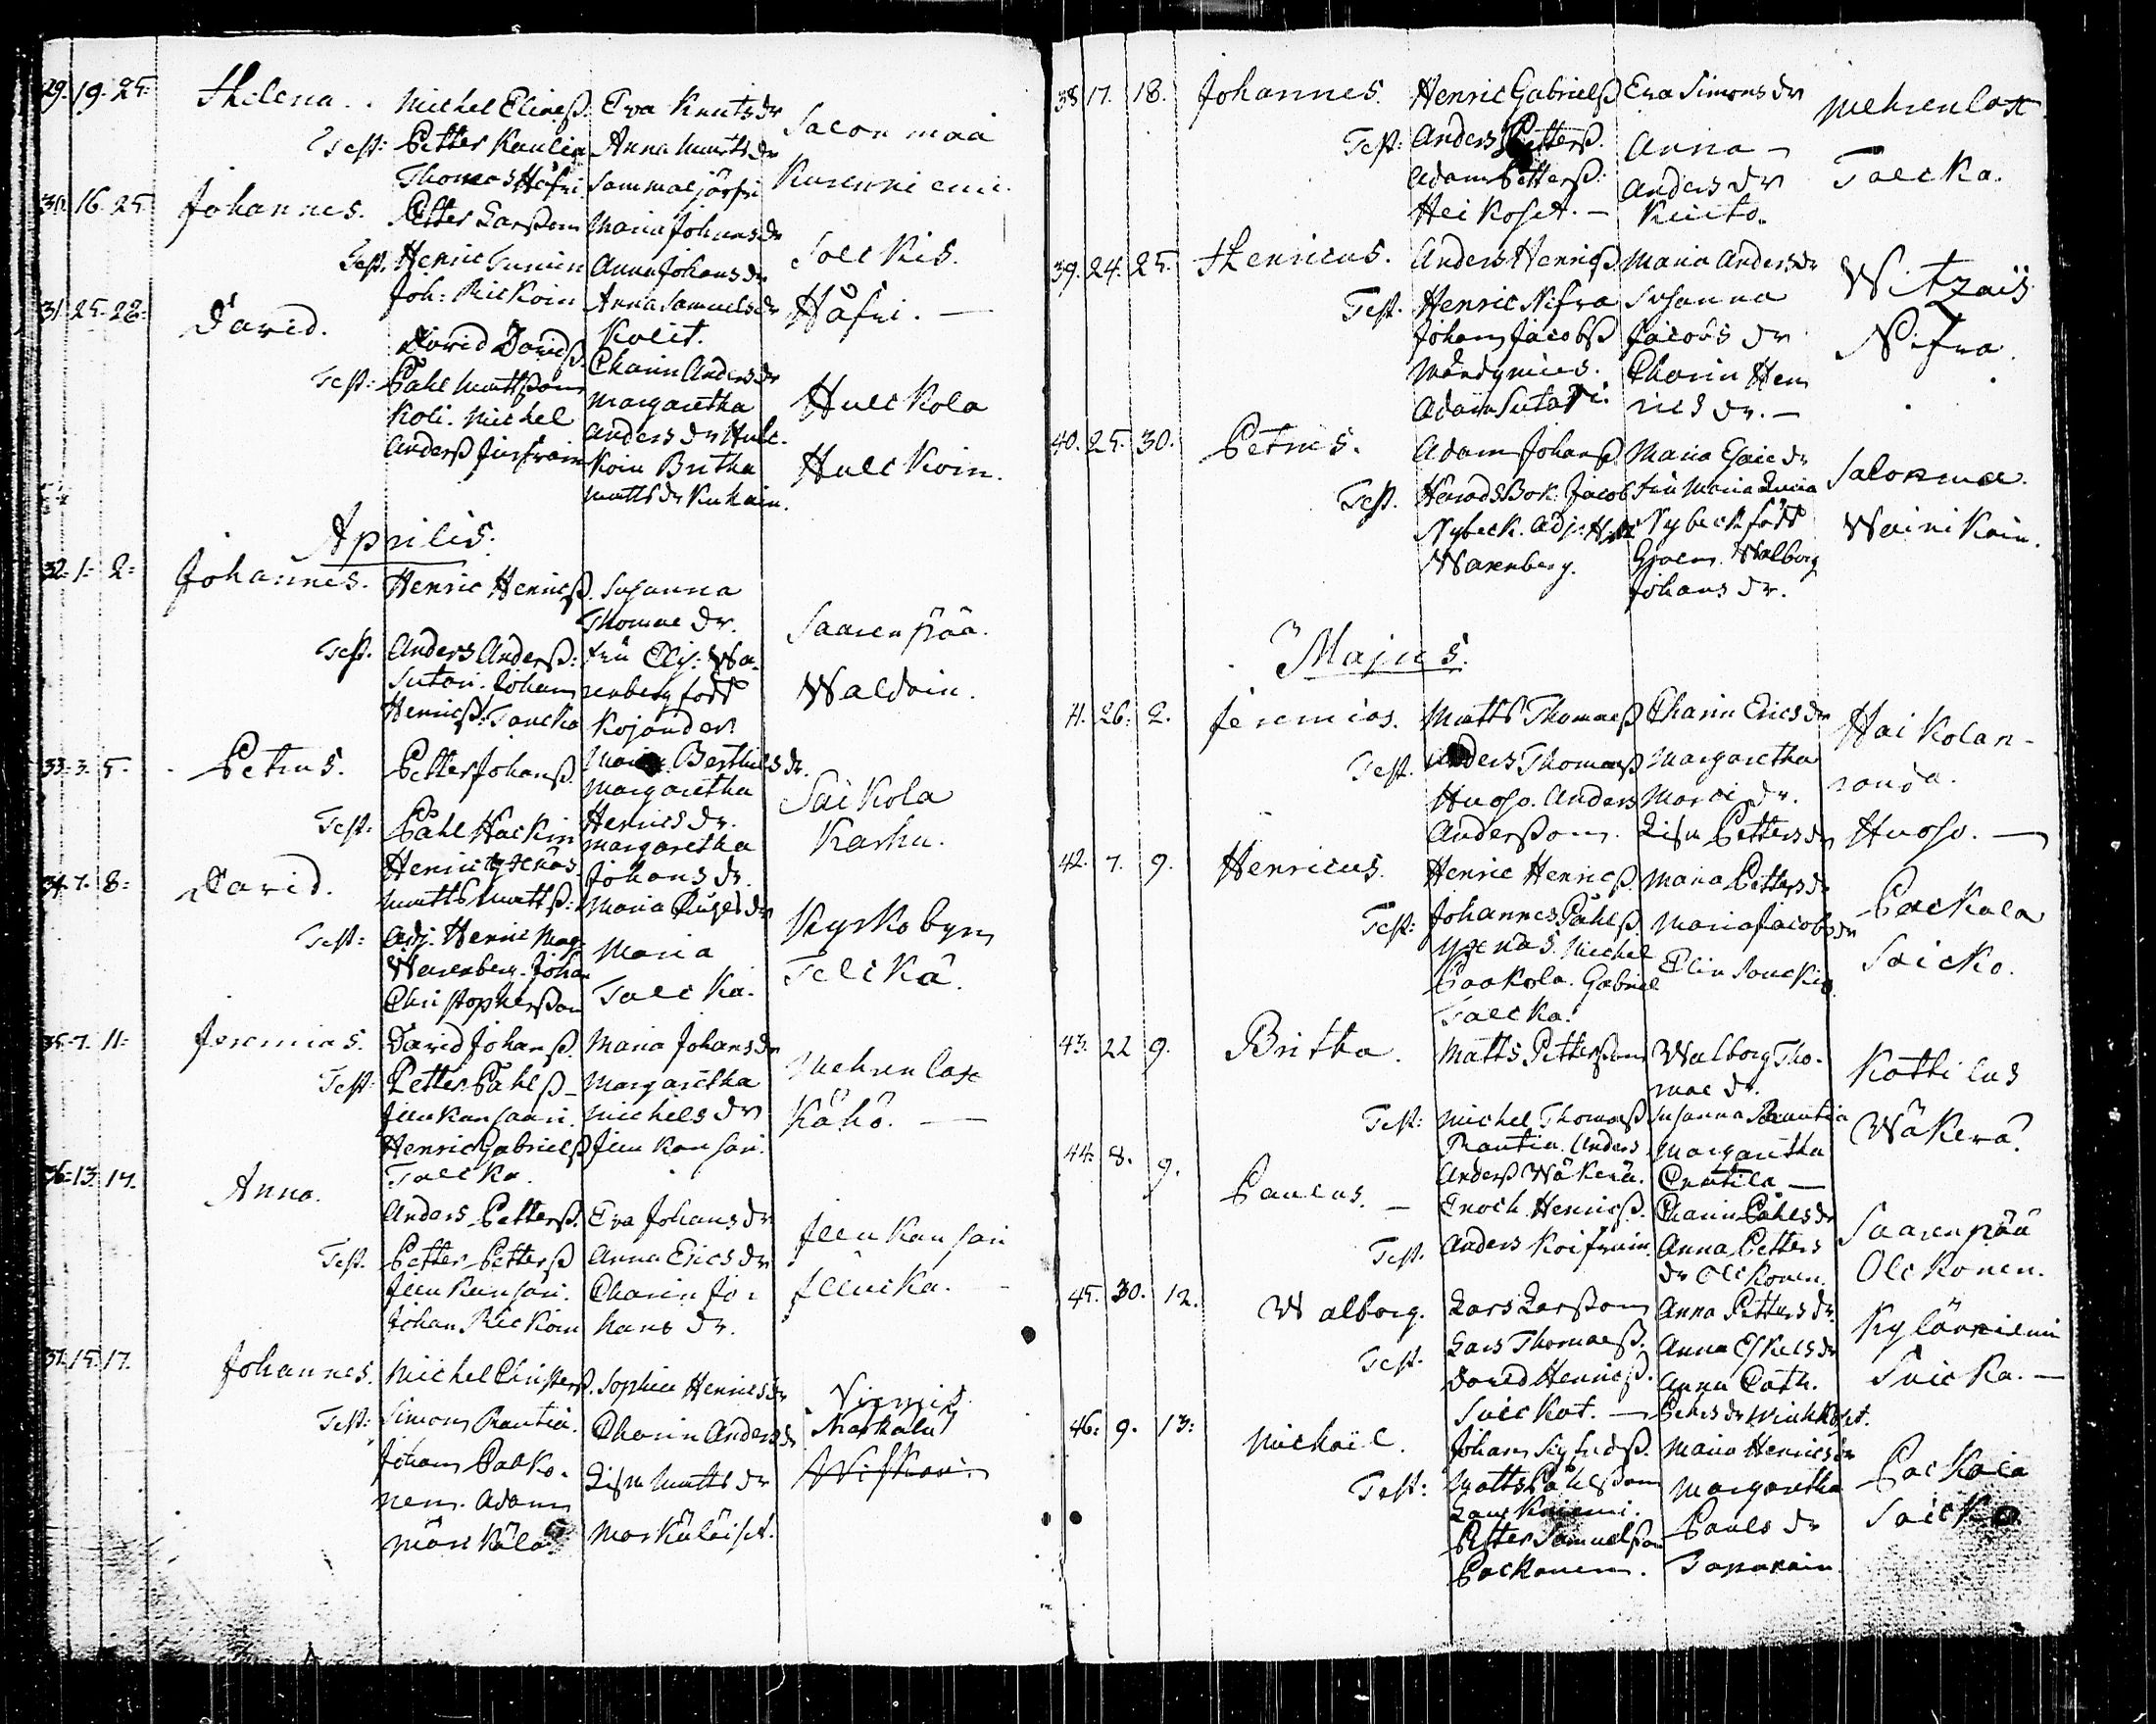 29. 19. 25. Helena. Michel Elineß. Eva Knuts dr
Salon maa
Test: Petter Kaulin Anna Matts dr
Thomas Håfri. Sammaljärfvi Kurenniemi.
30. 16. 25. Johannes. Petter Larßon Maria Johans dr
Sockis.
Test. Henric Tunnin Anna Johans dr
Joh: Rickoin Anna Samuels dr Håfri. —
31. 25. 28. David. Kolit.
David Davidß. Charin Anders dr
Test: Påhl Mattßon Margaretha Hulckola
Koli. Michel Anders dr Hulc-
Anderß koin Britha Hulckoin.
Matts dr Kukoin.
Aprilis.
32. 1. 2. Johannes. Henric Henricß. Susanna
Thomae dr. Saarenpää.
Test. Anders Anderß: fru Elis: Wa-
Sutari. Johan renberg född Waldoin.
Henricß: Tancka Kojander
33. 3. 5. Petrus. Petter Johanß. Maria Berthils dr.
Margaretha Saikola
Test: Påhl Hackin Henrics dr. Karhu.
Margaretha
Henric Yxenäs. Johans dr.
34. 7. 8. David. Matts Mattß: Maria dr Kyrkobyn
Test: Adj. Henric Mag: Maria
Warenberg. Johan Talcka. Telckä.
Christopherßon
35. 7. 11. Jeremias. David Johanß. Maria Johans dr
Mehrenlax
Test: Petter Påhlß- Margaretha
Jlenkansaari. Michels dr Kähö. —
Henric Gabrielß Jlenkansari.
Talcka.
36. 13. 14. Anna. Anders Petterß. Eva Johans dr
Jlenkansari
Test. Petter Petterß Anna Erics dr
Jlenkansari. Charin Jo- Jlencka.
Johan Rickoin hans dr.
37. 15. 17. Johannes. Michel Christerß. Sophia Henrics dr Niemis
Test: Simon Rautia. Charin Anders dr Markala
Johan Palko- Lisa Matts dr
nen. Adam
Märkälä Markäläiset.
38. 17. 18. Johannes. Henric Gabrielß Eva Simons dr Mehrenlax
Test: Anders Petterß. Anna —
Adam Petterß: Anders dr Talcka.
Heikoset. — Kuito.
39. 24. 25. Henricus. Anders Henricß Maria Anders dr Witzais
Test. Henric Nifra Susanna
Johan Jacobß Jacobs dr Nifra.
Mändymies. Charin Hen
Adam Sutari rics dr. —
40. 25. 30. Petrus. Adam Johanß. Maria Esaie dr Salonmaa.
Test. HeradsBok. Jacob fru Maria Lucia
Nybeck. Adj: H. Nybeck född Wainikain.
Warenberg. Walborg
Johans dr.
Majus.
41. 26. 2. Jeremias. Matts Thomaeß Charin Erics dr Haikolan-
Test. Anders Thomaeß Margaretha randa.
Huoso. Anders Marci dr.
Anderßon. Lisa Petters dr Huoso. —
42. 7. 9. Henricus. Henric Henricß. Maria Petters dr
Packala
Test: Johannes Påhlß. Maria Jacobs dr
Yxenäs. Michel Elin Saickio Saicko.
Paakola. Gabriel
Talcka.
43. 22 9. Britha. Matts Petterßon Walborg Tho- Kattilus
mae dr.
Test: Michel Thomaeß Susanna Rautia Wäkerä
Rautia. Anders Margaretha
Anderß Wäkerä.
44. 8. 9. Paulus. — Enoch Henricß. Charin Påhls dr Saarenpää
Test. Anders Koifvain. Anna Petters
dr Olckonen. Olckonen.
45. 30. 12. Walborg. Lars Larßon Anna Petters dr. Kyläniemi
Test. Lars Thomaeß. Anna Eskels dr
David Henricß. Anna Cath. Saicka. —
Saickot. —
46. 9. 13: Michaël. Johan Sigfridß. Maria Henrics dr Packala
Test: Matts Påhlßon Margaretha
Lauckniemi. Saicka
Petter Samuelßon Pauls dr
Packonen. Taparain.